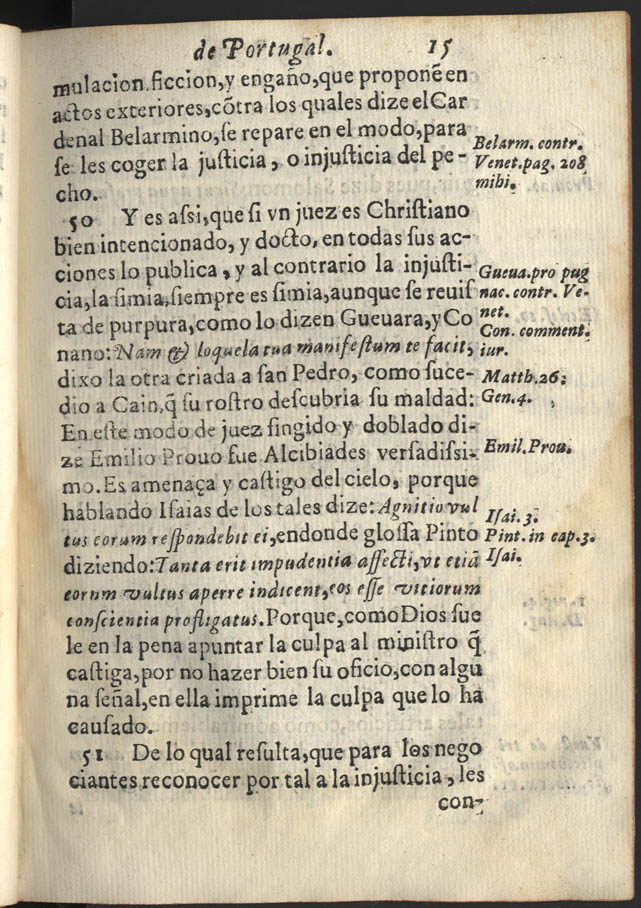 de Portugal. 15
mulacion.ficcion,y engaño,que proponẽ en
actos exteriores,cõtra los quales dize el Car
denal Belarmino,ſe repare en el modo,para
ſe les coger la juſticia, o injuſticia del pe-
cho.
Belarm. contr.
Venet.pag. 208
mihi.
50 Y es aſsi,que ſi vn juez es Chriſtiano
bien intencionado, y docto, en todas ſus ac-
ciones lo publica, y al contrario la injuſti-
cia,la ſimia,ſiempre es ſimia,aunque ſe reuiſ
ta de purpura,como lo dizen Gueuara,y Co
nano: Nam & loquela tua manifeſtum te facit,
dixo la otra criada a san Pedro, como ſuce-
dio a Cain,q̃ ſu roſtro deſcubria ſu maldad:
En eſte modo de juez fingido y doblado di-
ze Emilio Prouo fue Alcibiades verſadiſsi-
mo. Es amenaça y caſtigo del cielo, porque
hablando Iſaias de los tales dize: Agnitio vul
tus eorum reſpondebit ei,endonde gloſſa Pinto
diziendo:Tanta erit impudentia affecti,vt etiã
eorum vultus aperre indicent,eos eſſe vitiorum
conſcientia profligatus. Porque,como Dios ſue
le en la pena apuntar la culpa al miniſtro q̃
caſtiga,por no hazer bien ſu oficio,con algu
na ſeñal,en ella imprime la culpa que lo ha
cauſado.
Gueua.pro pug
nac. contr. Ve-
net.
Con. comment.
iur.
Matth.26;
Gen.4.
Emil.Prou.
Iſai. 3.
Pint. in cap.3.
Iſai.
51 De lo qual reſulta,que para los nego
ciantes reconocer por tal a la injuſticia, les
con-